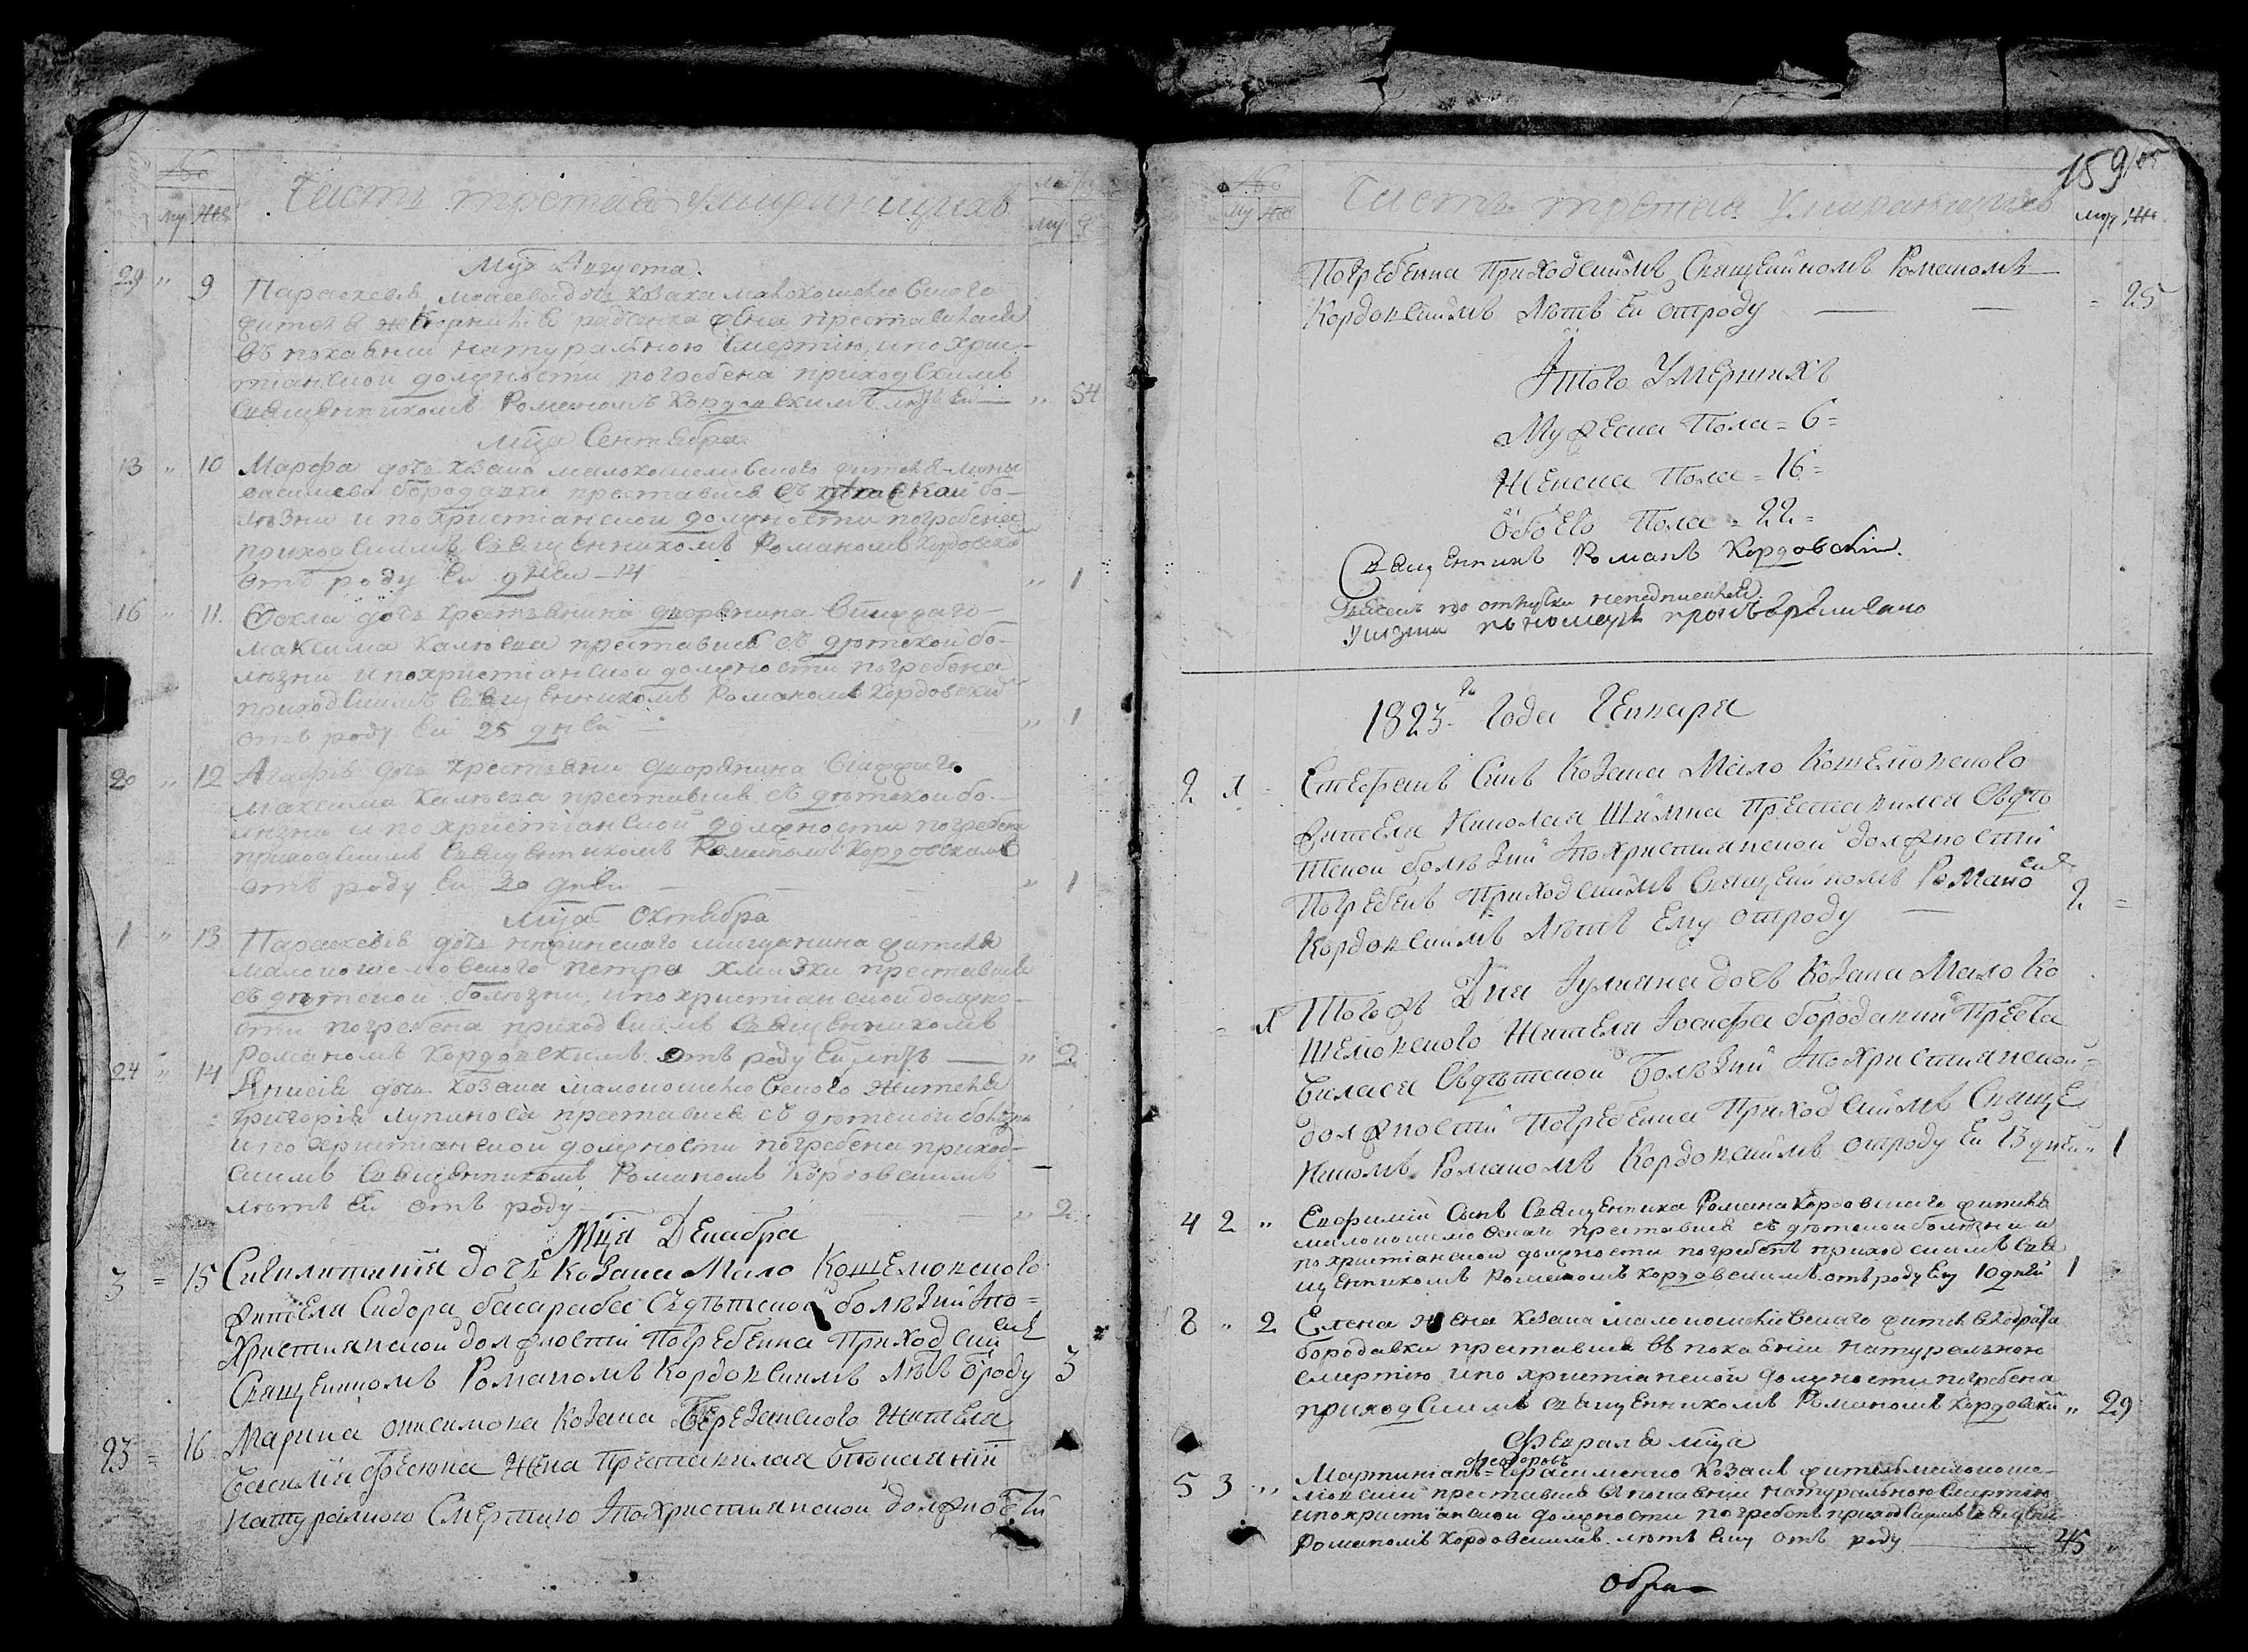 №
му же
Часть третая Умирающихъ
му ж
Мца Августа.
29 " 9 Параскева, моисеева дочь козака малокошелювского
жителя преставилася
въ покаянии натуральною смертию, и по хрис-
тианской должности погребена приходскимъ
священникомъ Романомъ Кордовскимъ летъ ей — " 54
Мца Сентября
13 " 10 Марфа дочь козака малокошелювского жителя
василева бородавки преставися съ детской бо-
лезни и по христианской должности погребена
приходскимъ священникомъ Романомъ Кордовски
отъ роду ей дней 14 " 1
16 " 11. Фекла дочь крестьянина дворянина
максима калюсва преставися съ детской бо-
лезни и по христианской должности погребена
приходскимъ священникомъ Романомъ Кордовски
отъ роду ей 25 дней — " 1
20 " 12 Агафия дочь крестьянина дворянина
максима калюсва преставися съ детской бо-
лезни и по христианской должности погребена
приходскимъ священникомъ Романомъ Кордовскимъ
отъ роду ей 20 дней — " 1
Мца Октября
1 " 13 Параскева дочь нежинского мищанина жителя
малокошелювского петра хмызки преставися
съ детской болезни, и по христианской должно-
сти погребена приходскимъ священникомъ
Романомъ Кордовскимъ отъ роду ей летъ — " 2
24 " 14 Анисия дочь козака малокошелювского жителя
григория лупиноса преставися съ детской болезни
и по христианской должности погребена приход-
скимъ священникомъ Романомъ Кордовскимъ —
летъ ей отъ роду — " 2
Мца Декабря
3 = 15 дочъ Козака Мало Кошелювского
жителя Сидора басарабы съ детской болезни и по=
христианской должности Погребенна Приходски
Священикомъ Романомъ Кордовскимъ летъ оброду 3
23 = 16 Марина онисимова Козака Березанского Жителя
Василия Фесюна Жена Преставилася впокаянии
натуралною Смертию и по христианской должности
159
№
му же
Часть третая Умирающихъ
му же
Погребенна Приходскимъ Священникомъ Романомъ
Кордовскимъ летъ ей отроду — — = 25
Итого Умершихъ
Мужеска Пола = 6 =
Женска Пола = 16 =
обоево Пола = 22 =
Священникъ Романъ Кордовский.
1823го Года Генваря
2 1 = Стефанъ Синъ Козака Мало Кошелювского
жителя Николая Шимка Преставился Сде
тской болезни и по христианской должности
Погребенъ Приходскимъ Священикомъ Романо
Кордовскимъ летъ Ему отроду — 2 =
= 1 Того жъ Дня Иулияна дочъ Козака Мало Ко
шелювского Жителя Иосифа бородавки Преста
вилася Сдетской Болезни и по христианской
должности Погребенна Приходскимъ Свяще
никомъ Романомъ Кордовскимъ отроду Ей 13 дней " 1
4 2 " Евфимий сынъ Священника Романа Кордовского жителя
малокошелювского преставися съ детской болезни и
по христианской должности погребенъ приходскимъ свя
щенникомъ Романомъ Кордовскимъ отъ роду Ему 10 дней 1
8 " 2 Елена жена козака малокошелювского жителя кодрата
бородавки преставися въ покаянии натуральною
смертию и по христианской должности погребена
приходскимъ священникомъ Романомъ Кордовски " 29
Февраля мца
5 3 " Мартинианъ федоровъ герасименко козакъ житель малокоше-
лювский преставися въ покаянии натуральною смертию
и по христианской должности погребенъ приходскимъ священ
Романомъ Кордовскимъ летъ ему отъ роду — 45 "